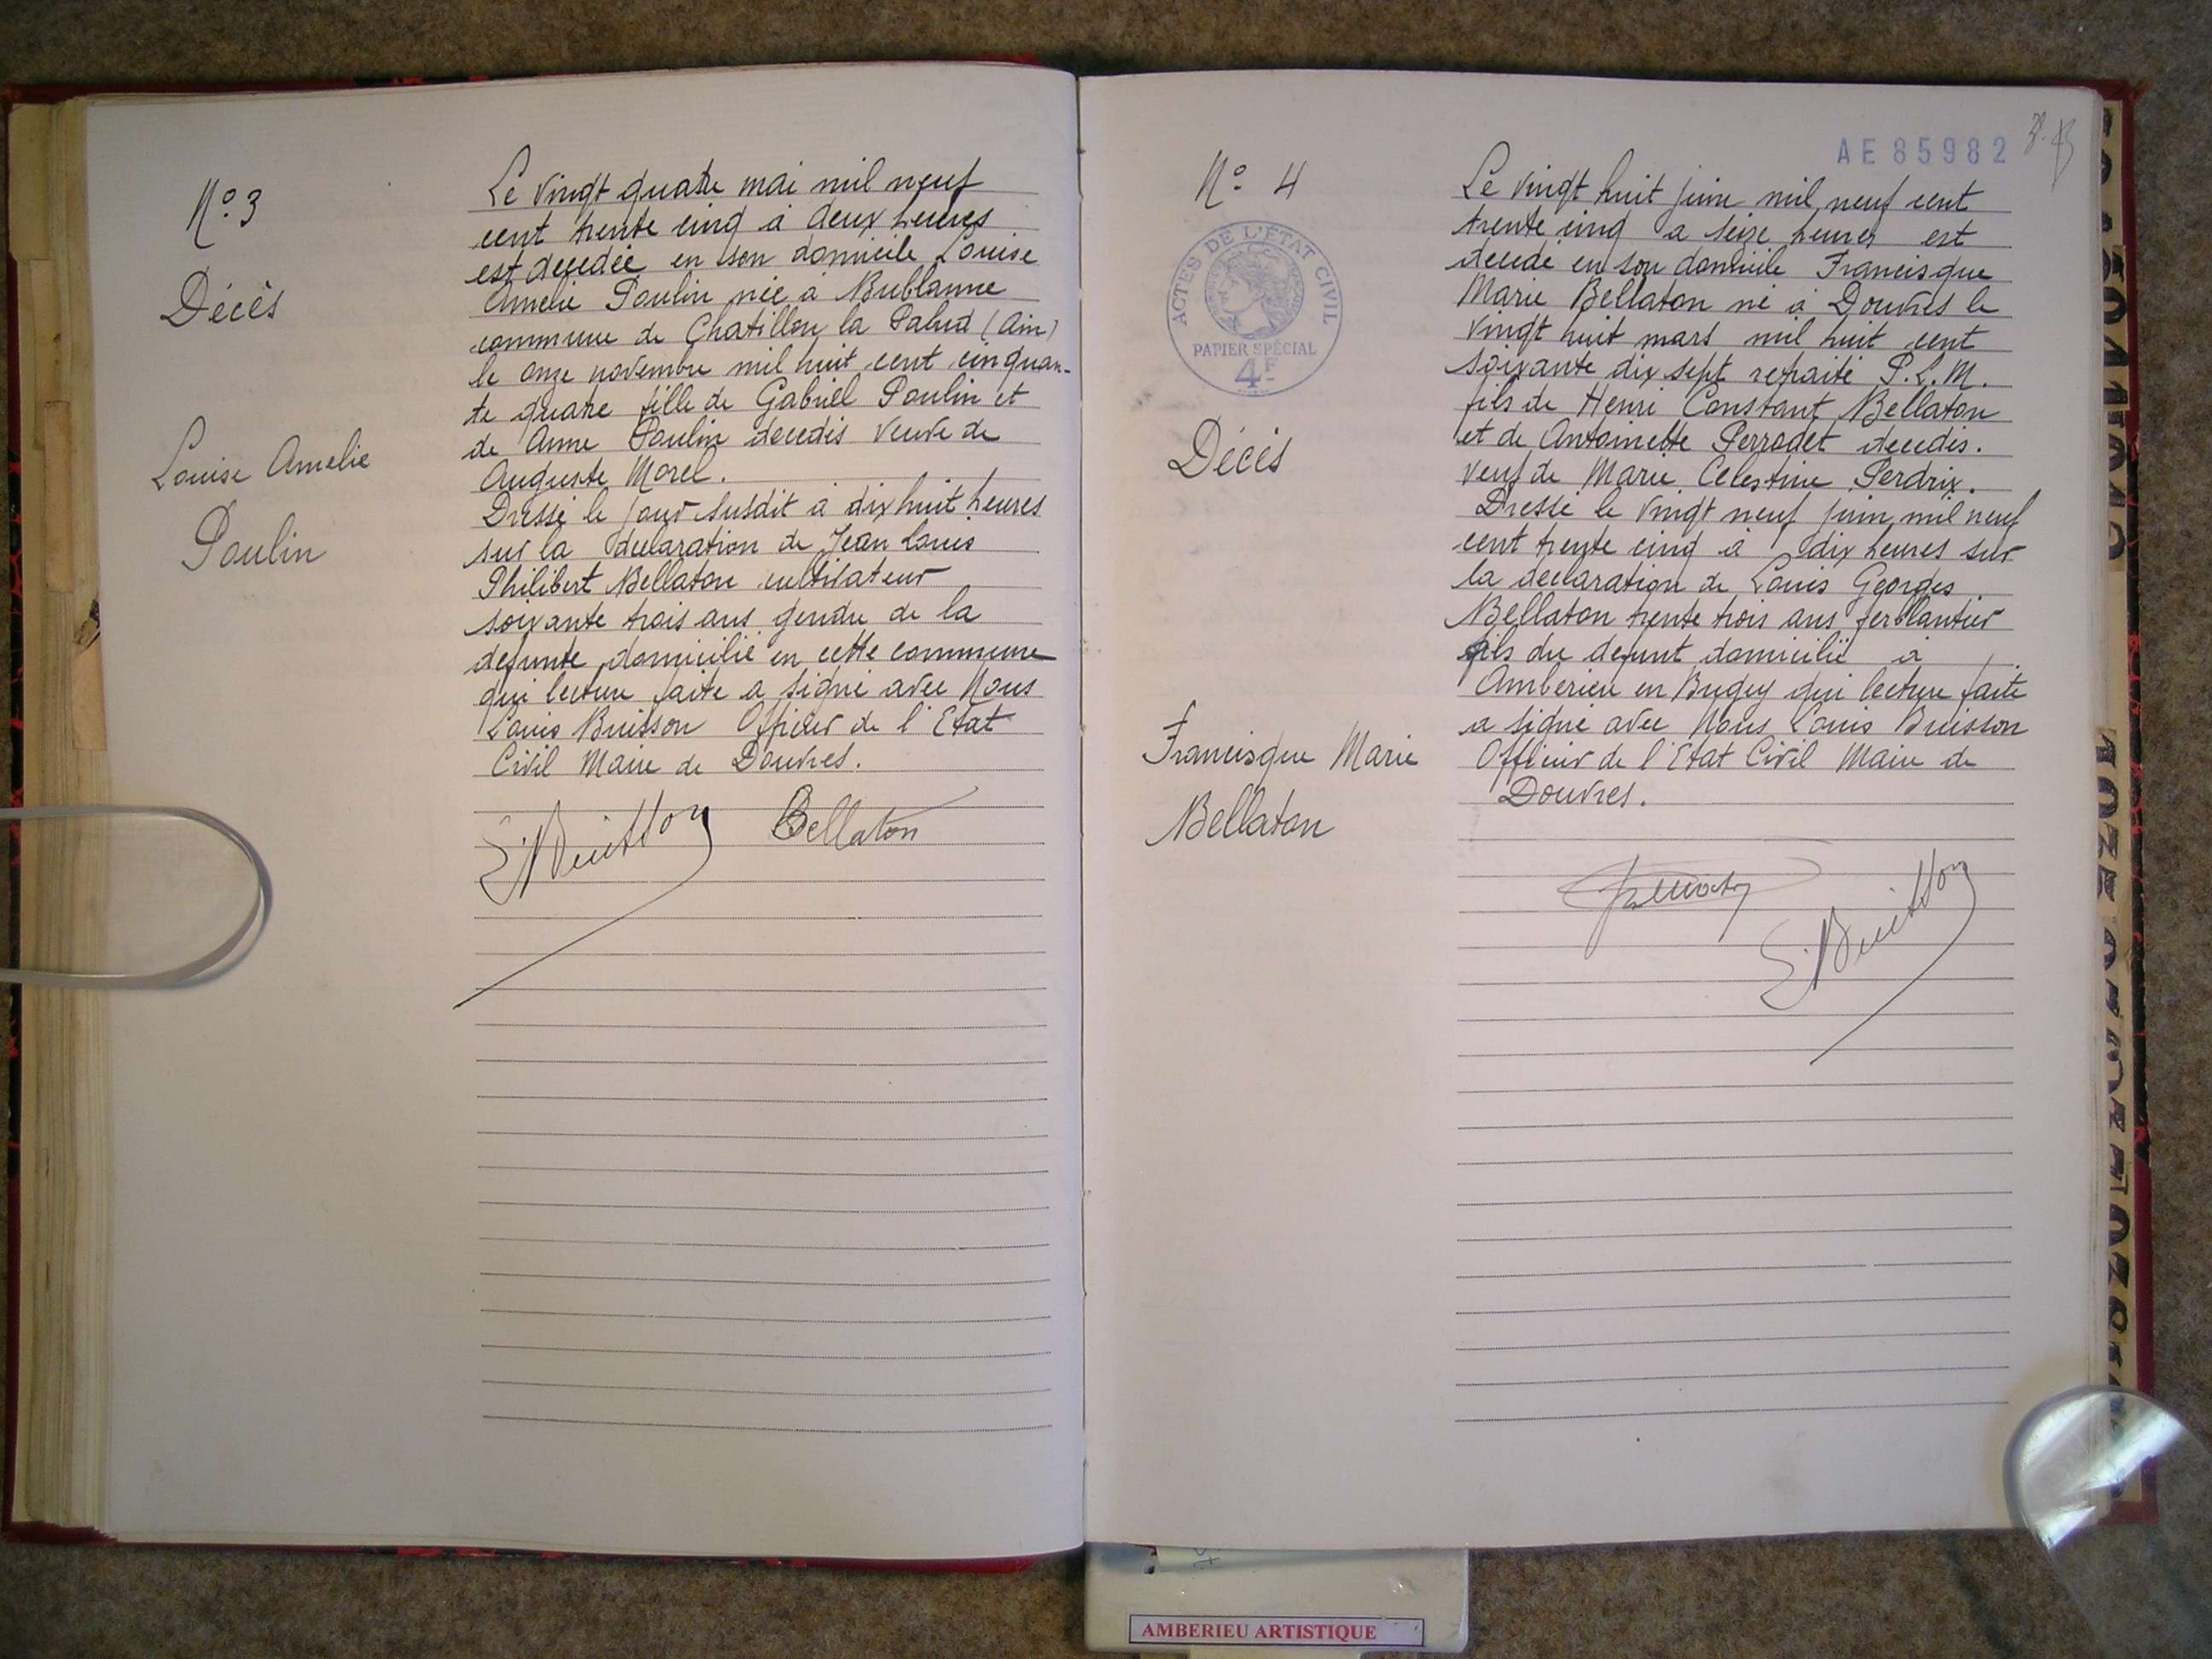 N° 3
Décès
Louise Amelie
Poulin
Le vingt quatre mai mil neuf
cent trente cinq à deux heures
est décédée en son domicile Louise
Amelie Poulin née à Bublanne
commune de Chatillon la Palud (Ain)
le onze novembre mil huit cent cinquan-
te quatre fille de Gabriel Poulin et
de Anne Poulin décédés veuve de
Auguste Morel.
Dressé le jour susdit à dix huit heures
sur la déclaration de Jean Louis
Philibert Bellaton cultivateur
soixante trois ans gendre de la
defunte domicilié en cette commune
qui lecture faite a signé avec Nous
Louis Buisson Officier de l'Etat
Civil Maire de Douvres.
L. Buisson Bellaton
AE 85982
N° 4
ACTES DE L'ÉTAT CIVIL
PAPIER SPÉCIAL
4F
Décès
Francisque Marie
Bellaton
Le vingt huit juin mil neuf cent
trente cinq a seize heures est
décédé en son domicile Francisque
Marie Bellaton né à Douvres le
vingt huit mars mil huit cent
soixante dix sept retraité P.L.M.
fils de Henri Constant Bellaton
et de Antoinette Perrodet décédés.
veuf de Marie Celestine Perdrix.
Dressé le vingt neuf juin mil neuf
cent trente cinq à dix heures sur
la déclaration de Louis Georges
Bellaton trente trois ans ferblantier
fils du defunt domicilié à
Amberieu en Bugey qui lecture faite
a signé avec Nous Louis Buisson
Officier de l'Etat Civil Maire de
Douvres.
L. Buisson
AMBERIEU ARTISTIQUE